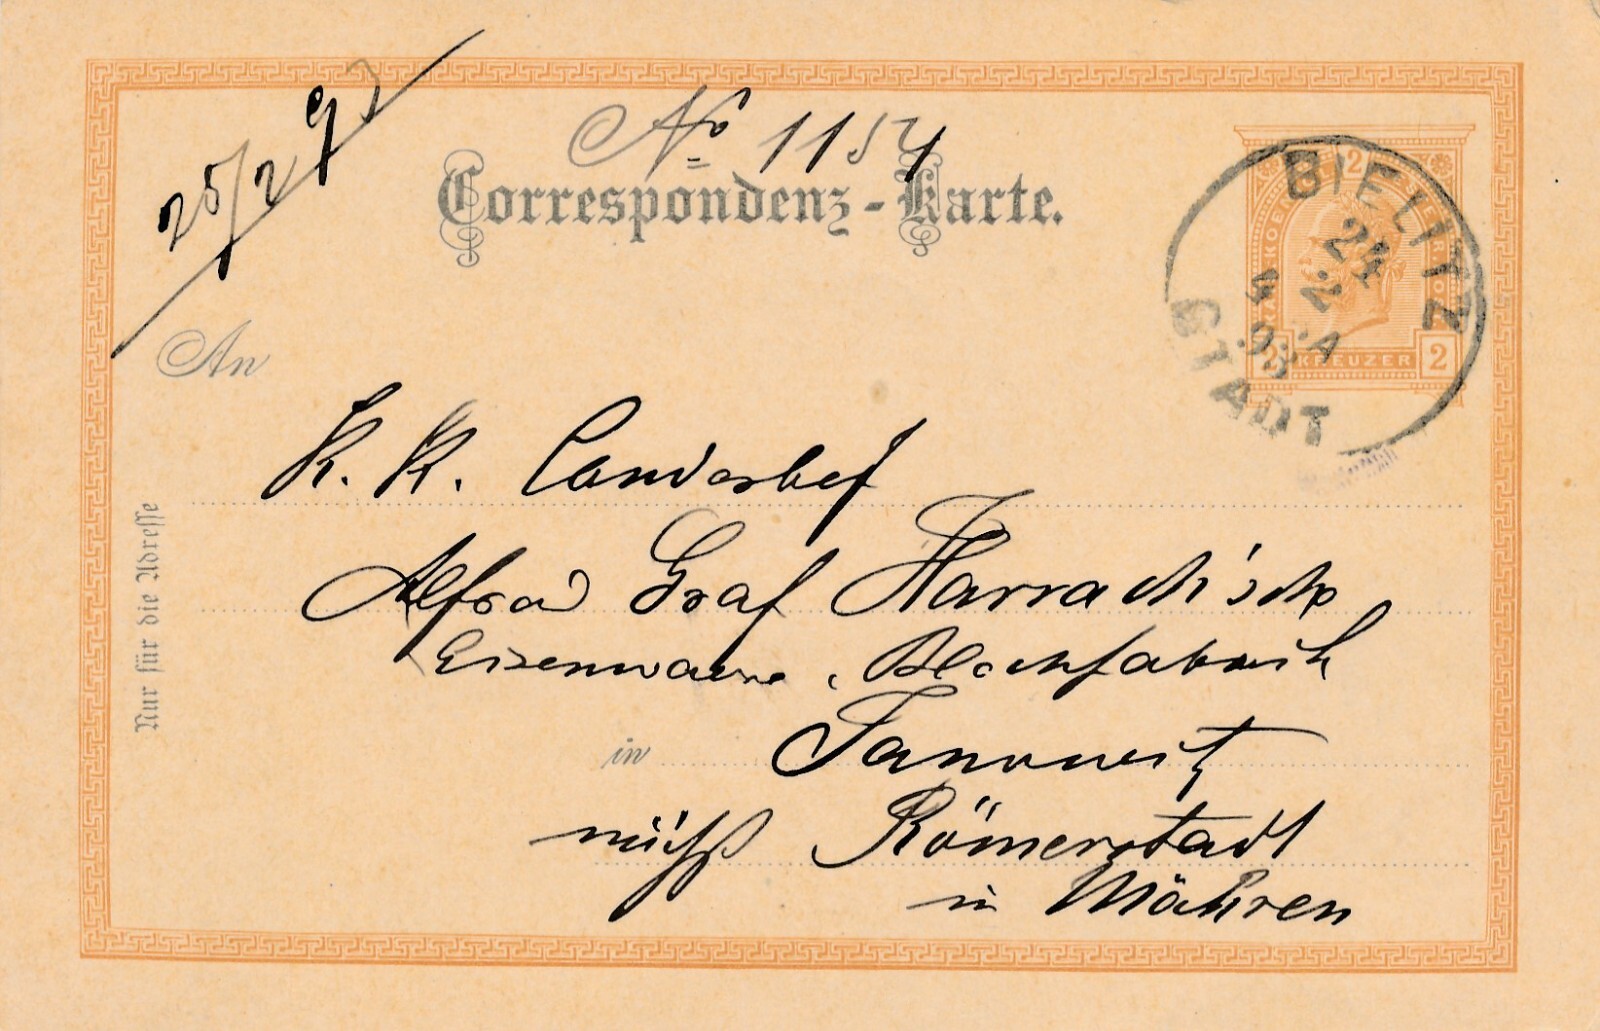 25/2 93
No 1154
Correspondenz-Karte.
BIELITZ
24
2
4 A
93
STADT
2
2 KREUZER 2
An
K. K. Landesbef
Alfred Graf Harrach'sche
Eisenwaare, Blechfabrik
in Janowitz
nächst Römerstadt
in Mähren
Nur für die Adresse